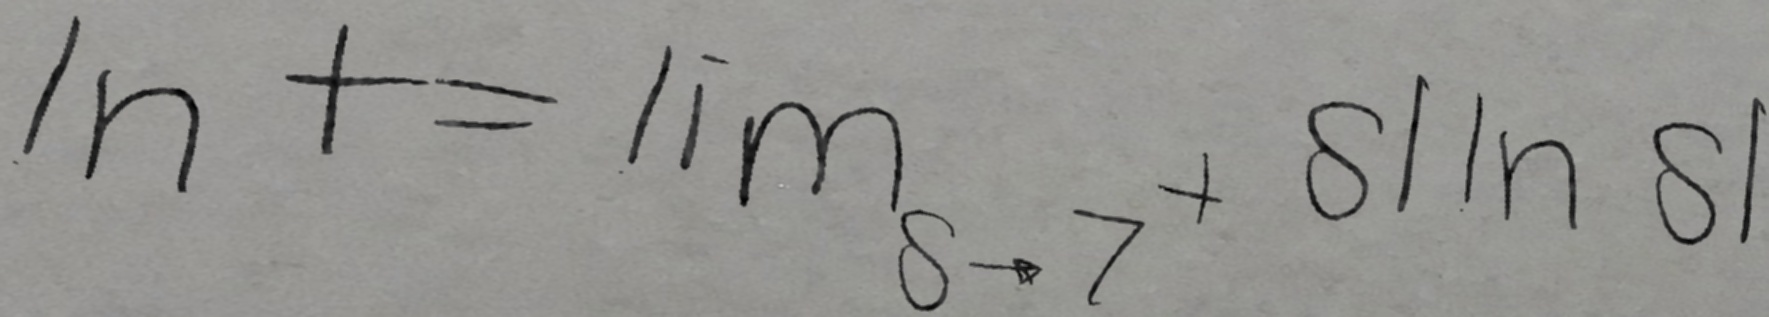 ln t = lim_{δ→7^+} δ|ln δ|